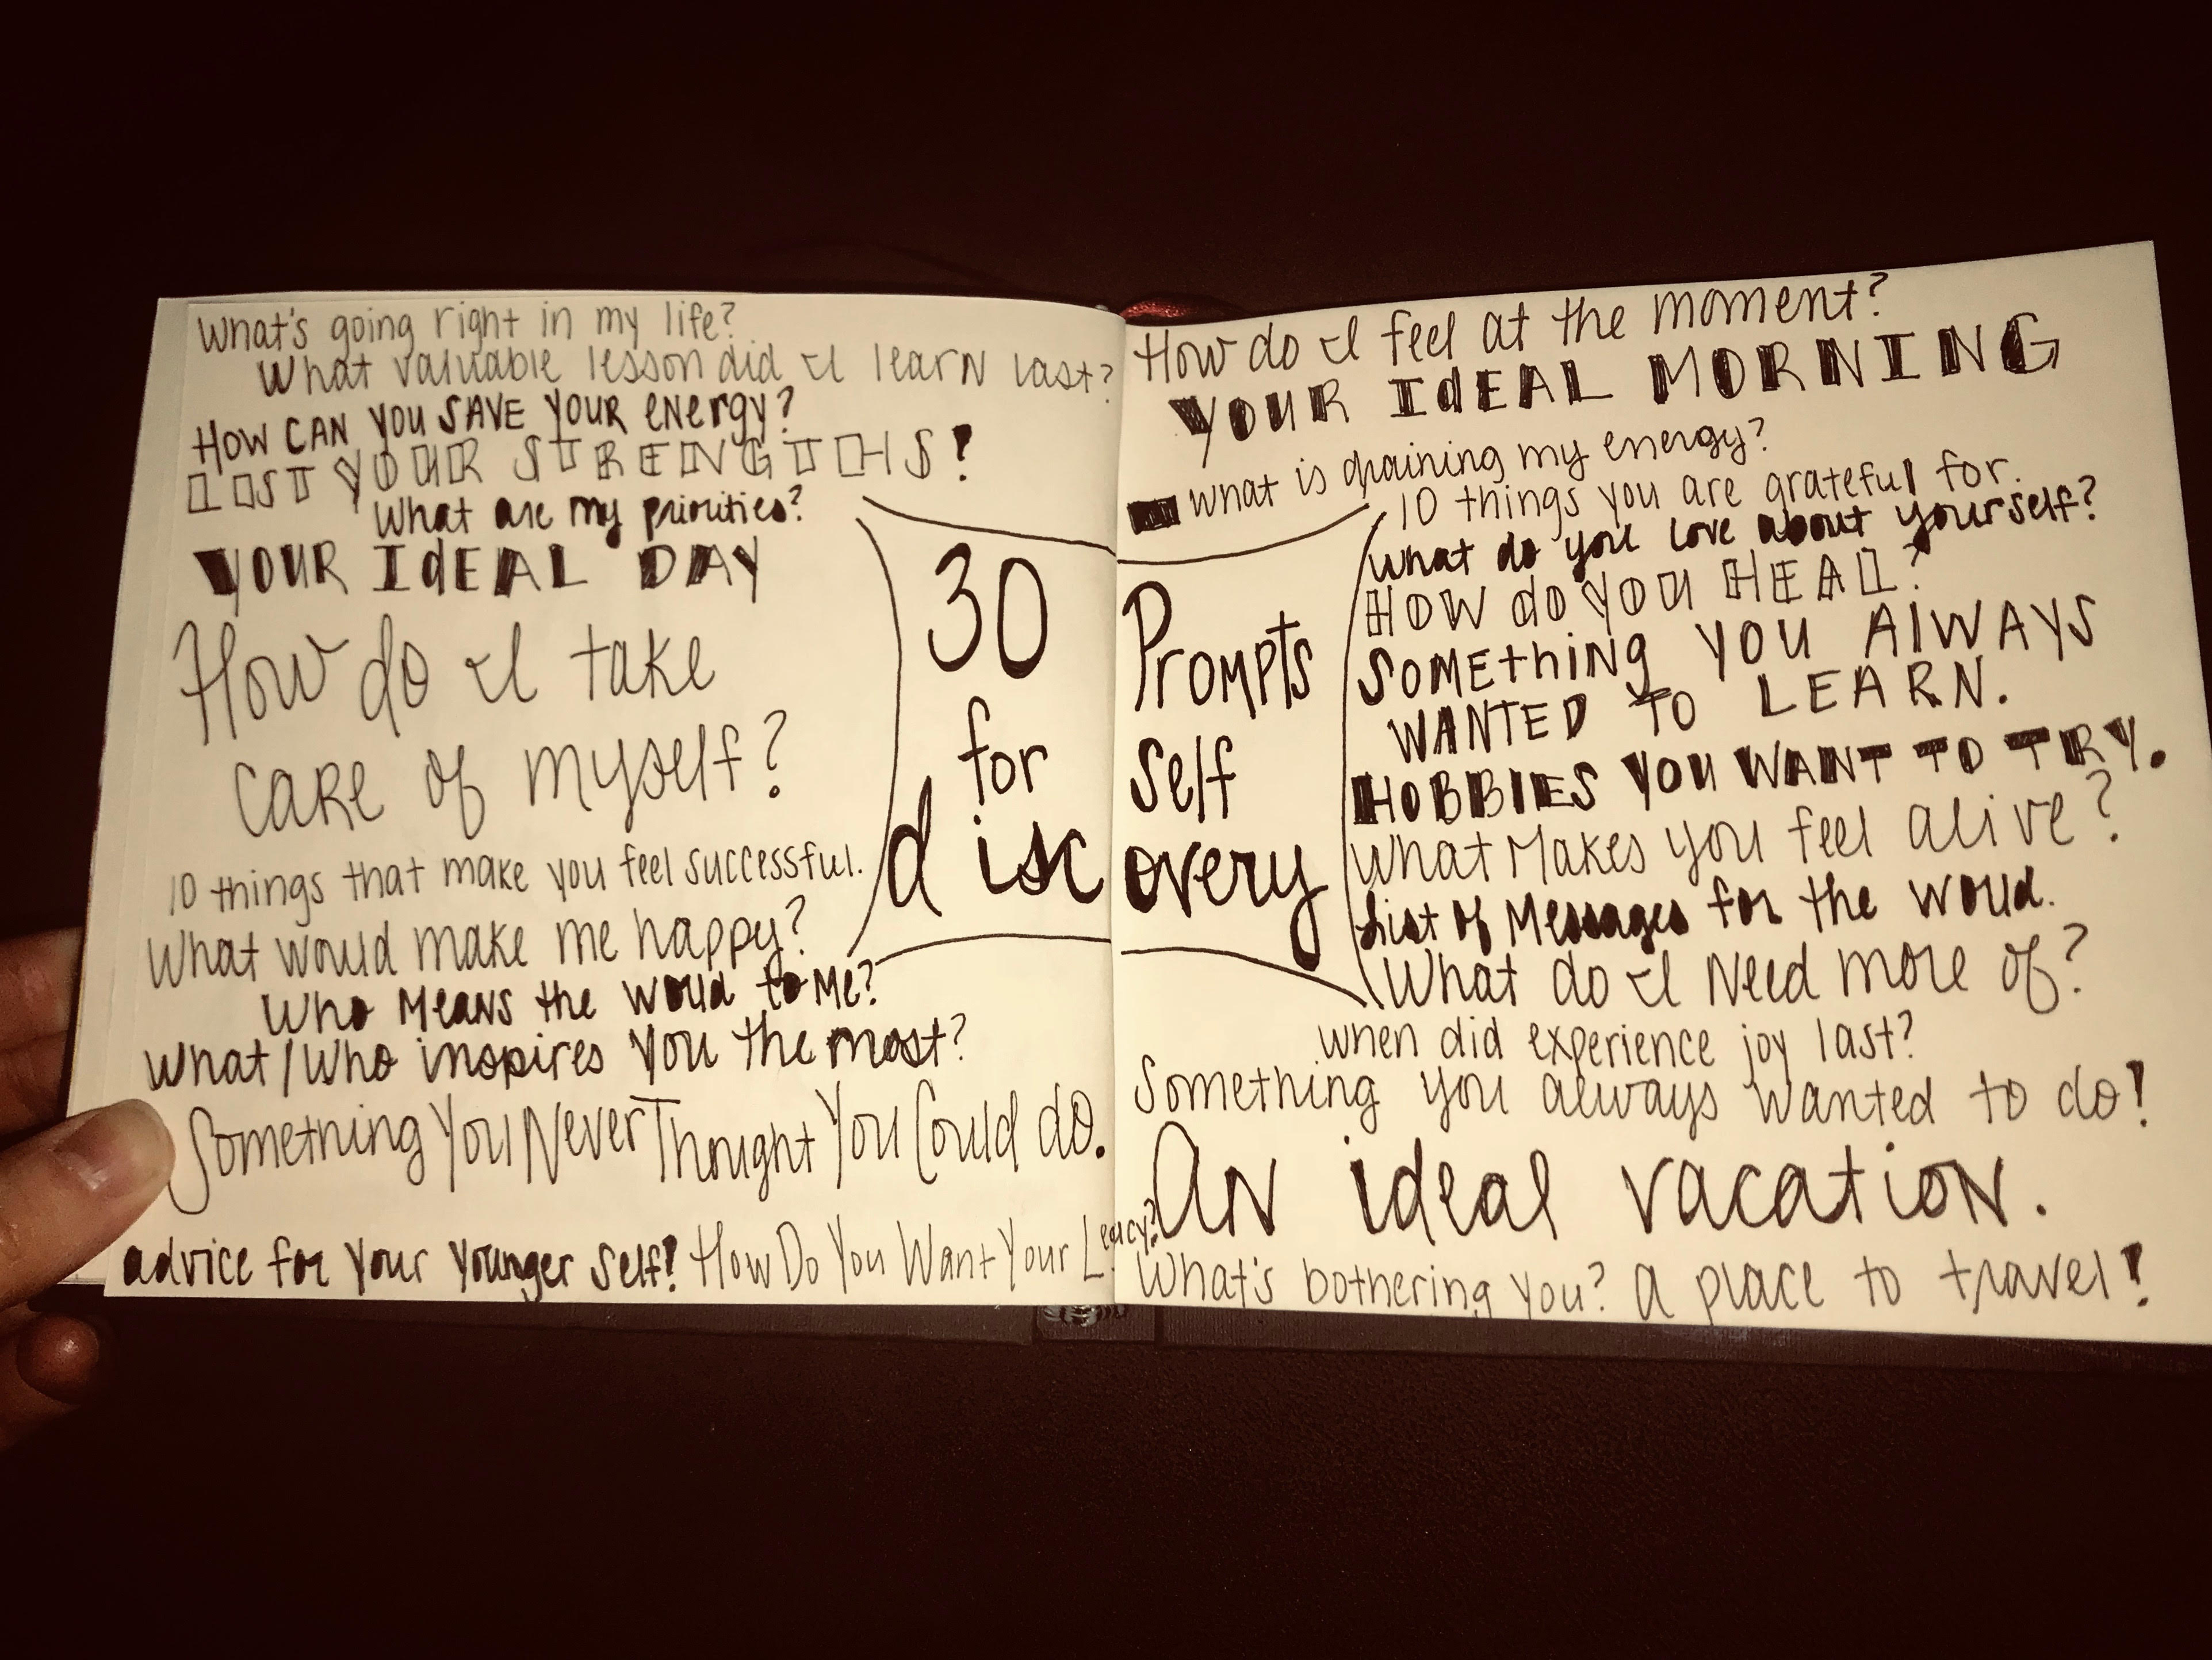 What's going right in my life?
What valuable lesson did I learn last?
HOW CAN YOU SAVE YOUR ENERGY?
LIST YOUR STRENGTHS!
What are my priorities?
YOUR IdEAL DAY
How do I take
care of myself?
10 things that make you feel successful.
What would make me happy?
Who Means the world to Me?
What/Who inspires you the most?
Something You Never Thought You Could do.
advice for your younger self! How Do You Want Your Legacy?
30 Prompts
for Self
discovery
How do I feel at the moment?
YOUR IdEAL MORNING
What is draining my energy?
10 things you are grateful for.
What do you love about yourself?
HOW do YOU HEAL?
SOMEthiNg YOU AlWAYS
WANTED TO LEARN.
HOBBIES YOU WANT TO TRY.
What Makes you feel alive?
List of Messages for the world.
What do I Need more of?
when did experience joy last?
Something you always wanted to do!
AN ideal vacation.
What's bothering you? a place to travel!